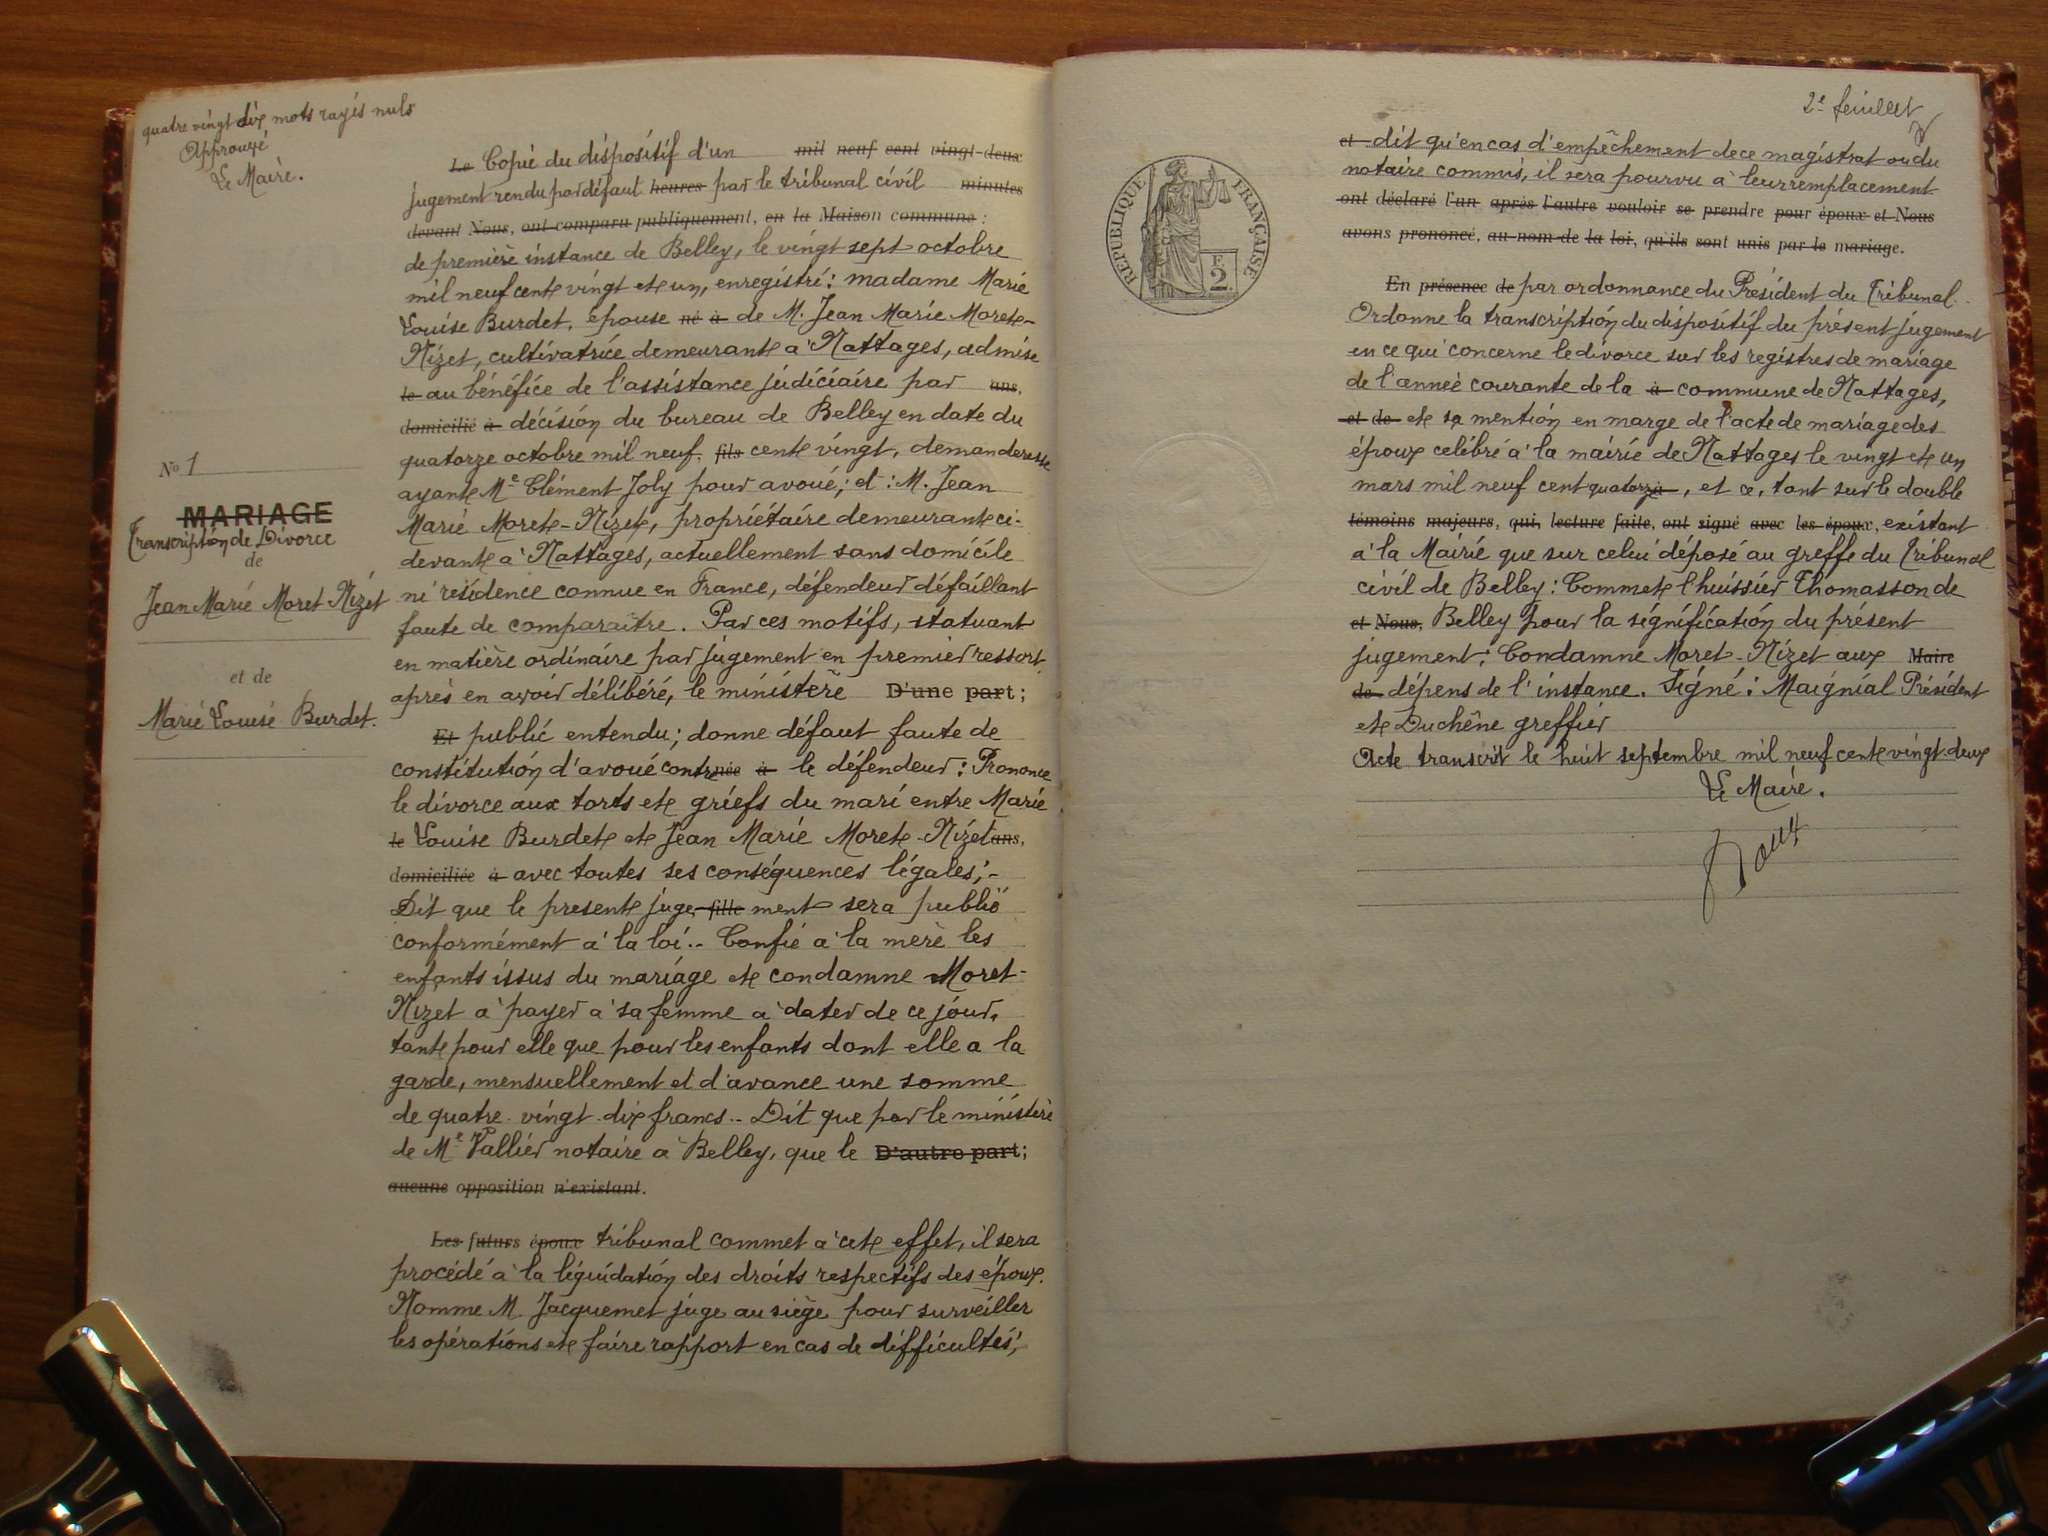 quatre vingt dix mots rayés nuls
Approuvé
Le Maire.
No 1
MARIAGE
Transcription de Divorce
de
Jean Marie Moret Nizet
et de
Marie Louise Burdet.
Le Copie du dispositif d'un mil neuf cent vingt-deux
jugement rendu par défaut heures par le tribunal civil minutes
devant Nous, ont comparu publiquement, en la Maison commune :
de première instance de Belley, le vingt sept octobre
mil neuf cent vingt et un, enregistré : madame Marie
Louise Burdet, épouse né à de M. Jean Marie Moret-
Nizet, cultivatrice demeurant à Nattages, admise
le au bénéfice de l'assistance judiciaire par ans,
domicilié à décision du bureau de Belley en date du
quatorze octobre mil neuf fils cent vingt, demanderesse
ayant Me Clément Joly pour avoué ; et : M. Jean
Marie Moret-Nizet, propriétaire demeurant ci-
devant à Nattages, actuellement sans domicile
ni résidence connue en France, défendeur défaillant
faute de comparaitre. Par ces motifs, statuant
en matière ordinaire par jugement en premier ressort
après en avoir délibéré, le ministère D'une part ;
Et public entendu ; donne défaut faute de
constitution d'avoué contre née à le défendeur : Prononce
le divorce aux torts et griefs du mari entre Marie
le Louise Burdet et Jean Marie Moret-Nizet ans,
domiciliée à avec toutes ses conséquences légales ; -
Dit que le present juge- fille ment sera publié
conformément à la loi .- Confie à la mère les
enfants issus du mariage et condamne Moret-
Nizet à payer à sa femme à dater de ce jour,
tant pour elle que pour les enfants dont elle a la
garde, mensuellement et d'avance une somme
de quatre-vingt-dix francs .- Dit que par le ministère
de Me Vallier notaire à Belley, que le D'autre part ;
aucune opposition n'existant.
Les futurs époux tribunal commet à cet effet, il sera
procédé à la liquidation des droits respectifs des époux.
Nomme M. Jacquemet juge au siège pour surveiller
les opérations et faire rapport en cas de difficultés ;
2e feuillet
REPUBLIQUE FRANÇAISE
F. 2.
et dit qu'en cas d'empêchement de ce magistrat ou du
notaire commis, il sera pourvu à leur remplacement
ont déclaré l'un après l'autre vouloir se prendre pour époux et Nous
avons prononcé, au nom de la loi, qu'ils sont unis par le mariage.
En présence de par ordonnance du Président du Tribunal.
Ordonne la transcription du dispositif du présent jugement
en ce qui concerne le divorce sur les registres de mariage
de l'année courante de la à commune de Nattages,
et de et sa mention en marge de l'acte de mariage des
époux célébré à la mairie de Nattages le vingt et un
mars mil neuf cent quatorze à, et ce, tant sur le double
témoins majeurs, qui, lecture faite, ont signé avec les époux, existant
à la Mairie que sur celui déposé au greffe du Tribunal
civil de Belley : Commet l'huissier Thomasson de
et Nous, Belley pour la signification du présent
jugement ; Condamne Moret-Nizet aux Maire
de dépens de l'instance. Signé : Maignial Président
et Duchêne greffier
Acte transcrit le huit septembre mil neuf cent vingt-deux
Le Maire.
Roux